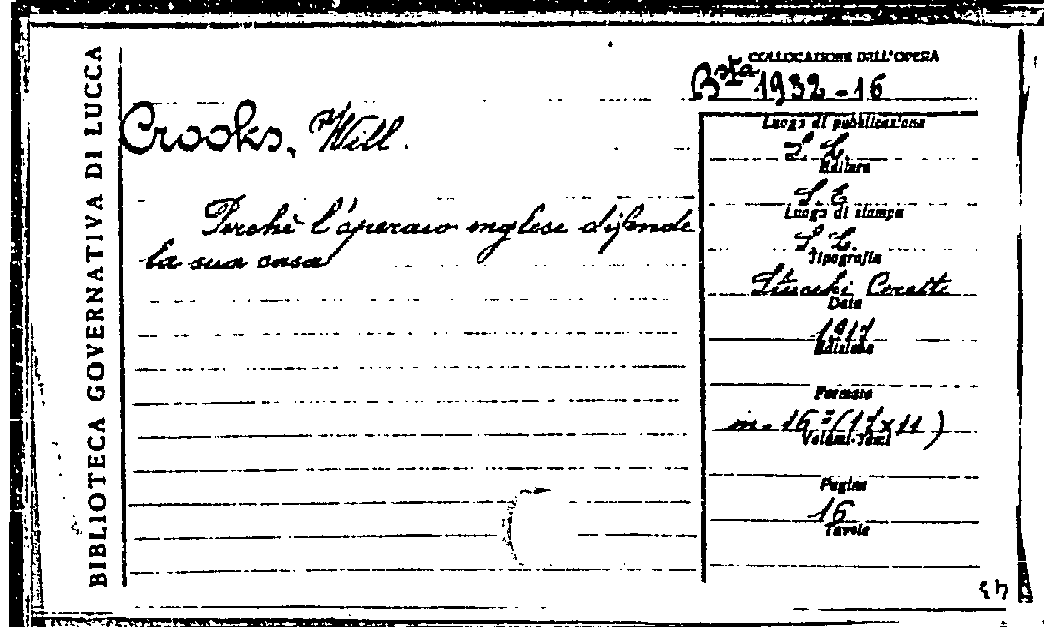 BIBLIOTECA GOVERNATIVA DI LUCCA
COLLOCAZIONE DELL'OPERA
Bsta 1932-16
Crooks, Will.
Perchè l'operaio inglese difende
la sua casa
Luogo di pubblicazione
S. L.
Editore
S. E.
Luogo di stampa
S. L.
Tipografia
Stucchi Ceretti
Data
1917
Edizione
Formato
in-16° (17x11)
Volumi-Tomi
Pagine
16
Tavole